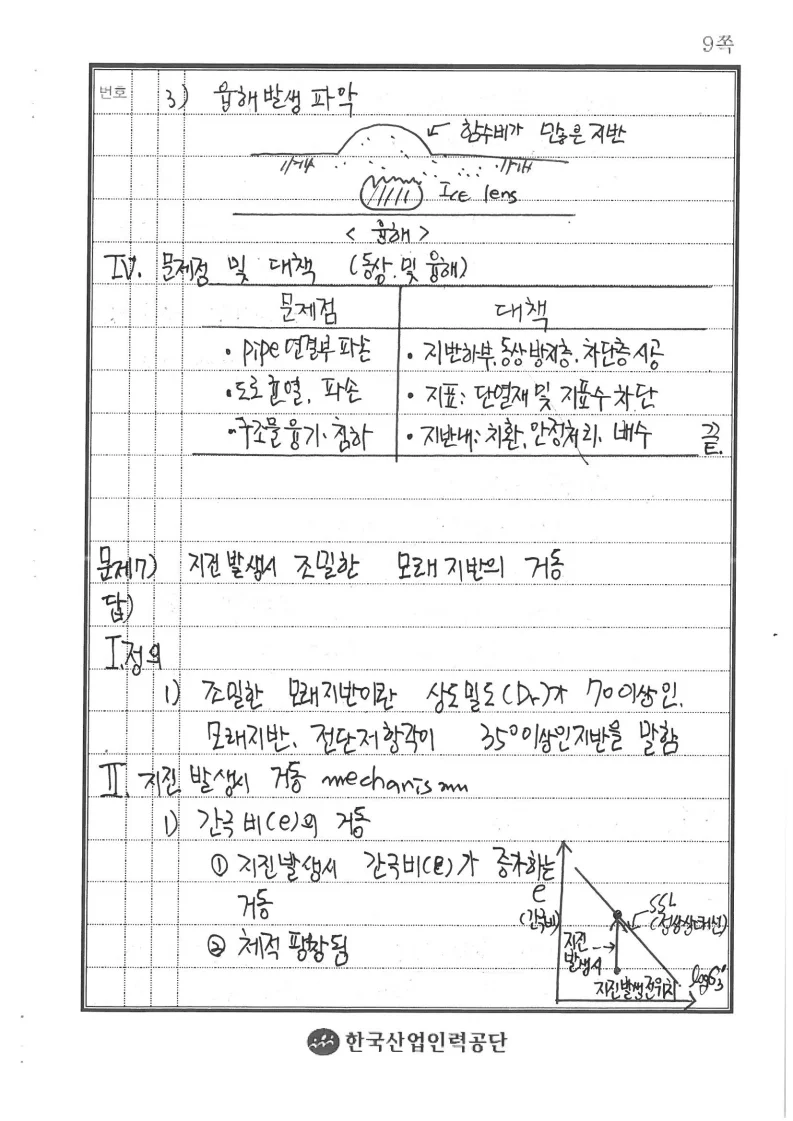 9쪽
번호
3) 융해발생 파악
함수비가 많은 지반
Ice lens
< 융해 >
IV. 문제점 및 대책 (동상 및 융해)
문제점 대책
· pipe 연결부 파손 · 지반하부, 동상방지층, 차단층 시공
· 도로 균열, 파손 · 지표: 단열재 및 지표수 차단
· 구조물 융기·침하 · 지반내: 치환, 안정처리, 배수 끝.
문제7) 지진 발생시 조밀한 모래지반의 거동
답)
I. 정의
1) 조밀한 모래지반이란 상도밀도(Dr)가 70이상인,
모래지반, 전단저항각이 35°이상인지반을 말함
II. 지진 발생시 거동 mechanism
1) 간극비(e)의 거동
① 지진발생시 간극비(e)가 증가하는
거동
② 체적 팽창됨
e
(간극비)
SSL
(정상상태선)
지진
발생시
지진발생전위치
logσ3'
한국산업인력공단